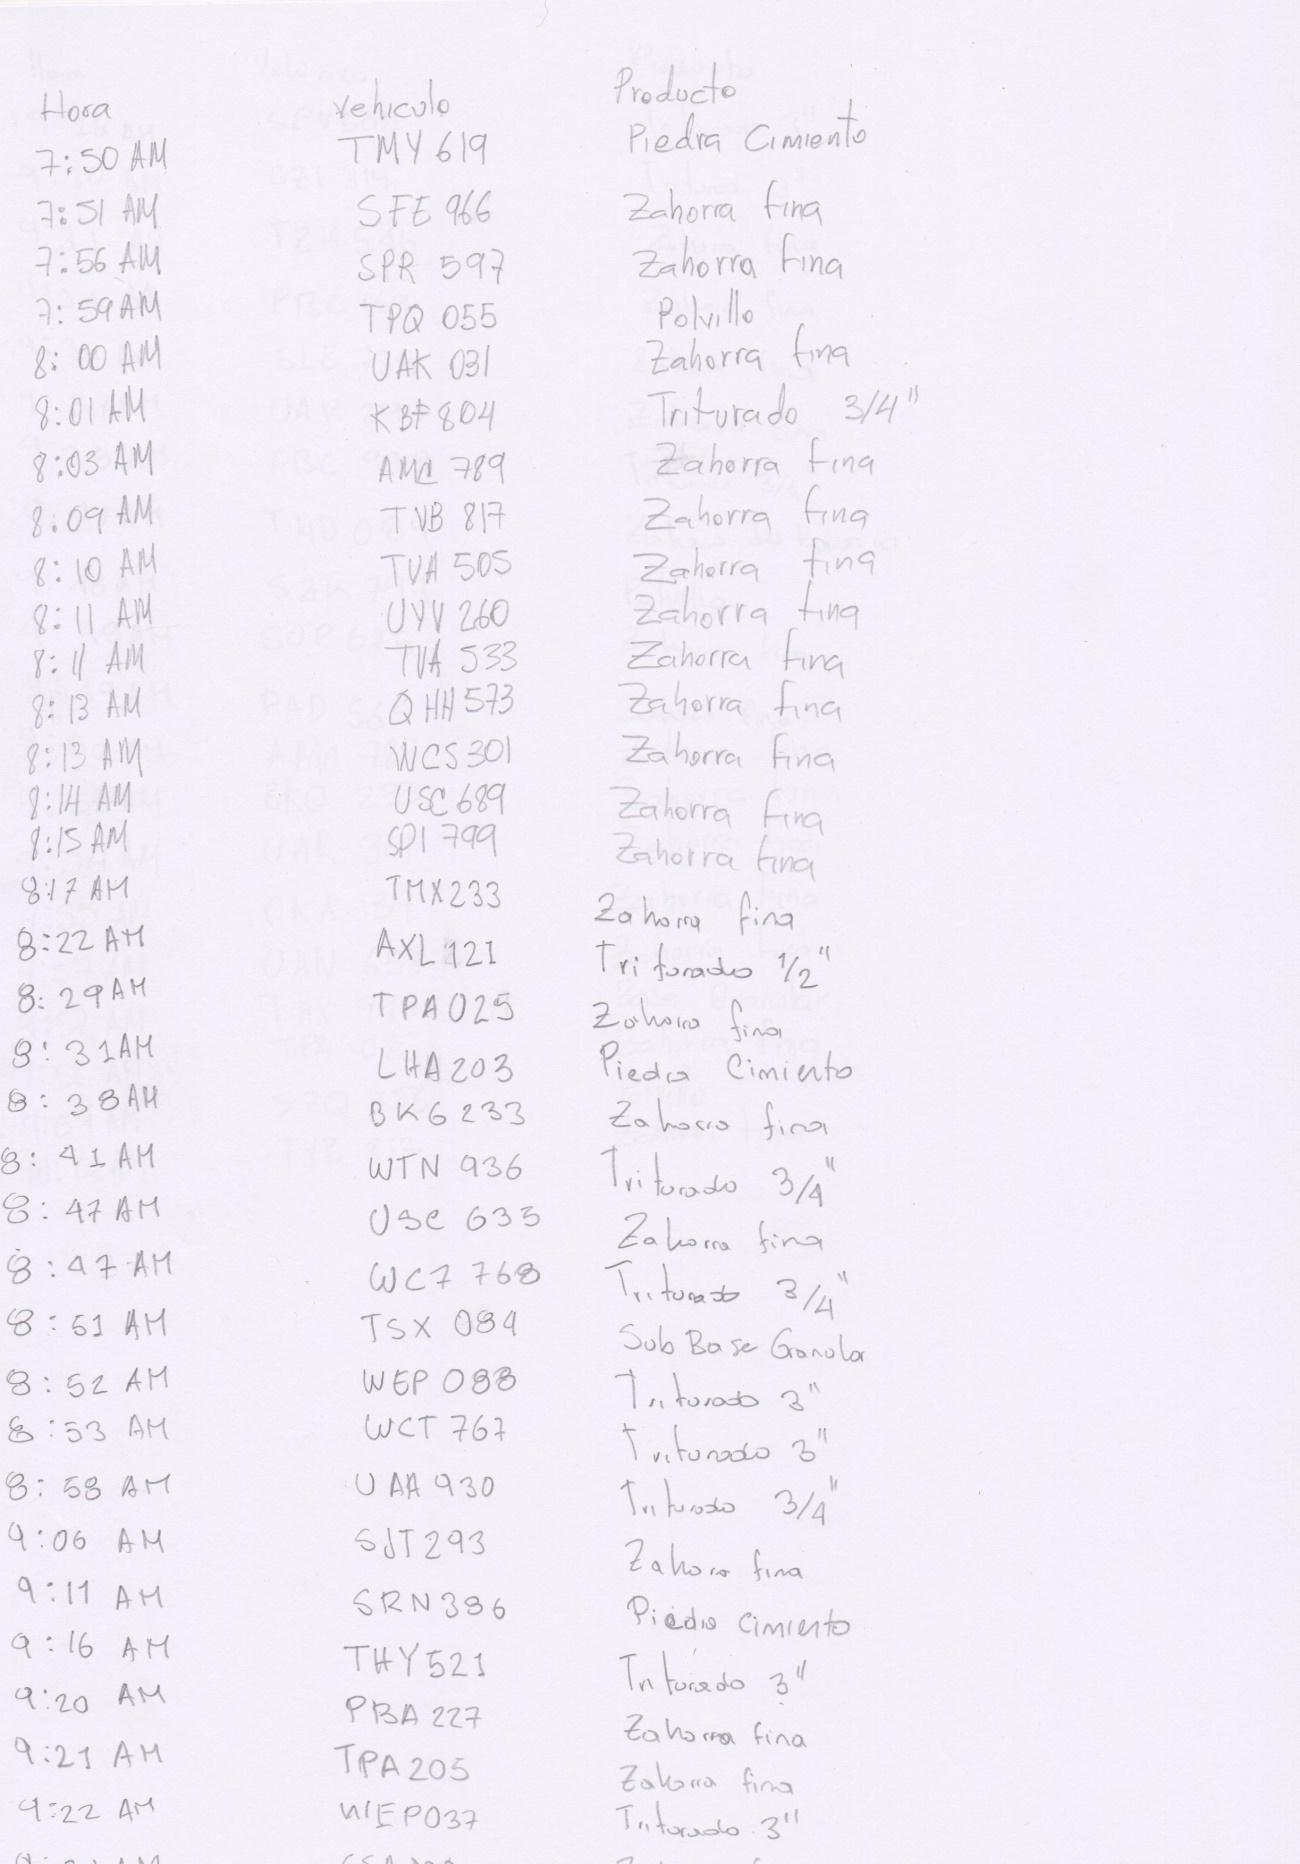 Hora Vehiculo Producto
7:50 AM TMY 619 Piedra Cimiento
7:51 AM SFE 966 Zahorra fina
7:56 AM SPR 597 Zahorra fina
7:59 AM TPQ 055 Polvillo
8:00 AM UAK 031 Zahorra fina
8:01 AM KBF 804 Triturado 3/4"
8:03 AM AMC 789 Zahorra fina
8:09 AM TVB 817 Zahorra fina
8:10 AM TVA 505 Zahorra fina
8:11 AM UYV 260 Zahorra fina
8:11 AM TVA 533 Zahorra fina
8:13 AM QHH 573 Zahorra fina
8:13 AM WCS 301 Zahorra fina
8:14 AM USC 689 Zahorra fina
8:15 AM SPI 799 Zahorra fina
8:17 AM TMX 233 Zahorra fina
8:22 AM AXL 121 Triturado 1/2"
8:29 AM TPA 025 Zahorra fina
8:31 AM LHA 203 Piedra Cimiento
8:38 AM BKG 233 Zahorra fina
8:41 AM WTN 936 Triturado 3/4"
8:47 AM USC 635 Zahorra fina
8:47 AM WC7 768 Triturado 3/4"
8:51 AM TSX 084 Sub Base Granular
8:52 AM WEP 088 Triturado 3"
8:53 AM WCT 767 Triturado 3"
8:58 AM UAA 930 Triturado 3/4"
9:06 AM SJT 293 Zahorra fina
9:11 AM SRN 386 Piedra Cimiento
9:16 AM THY 521 Triturado 3"
9:20 AM PBA 227 Zahorra fina
9:21 AM TPA 205 Zahorra fina
9:22 AM WEP 037 Triturado 3"